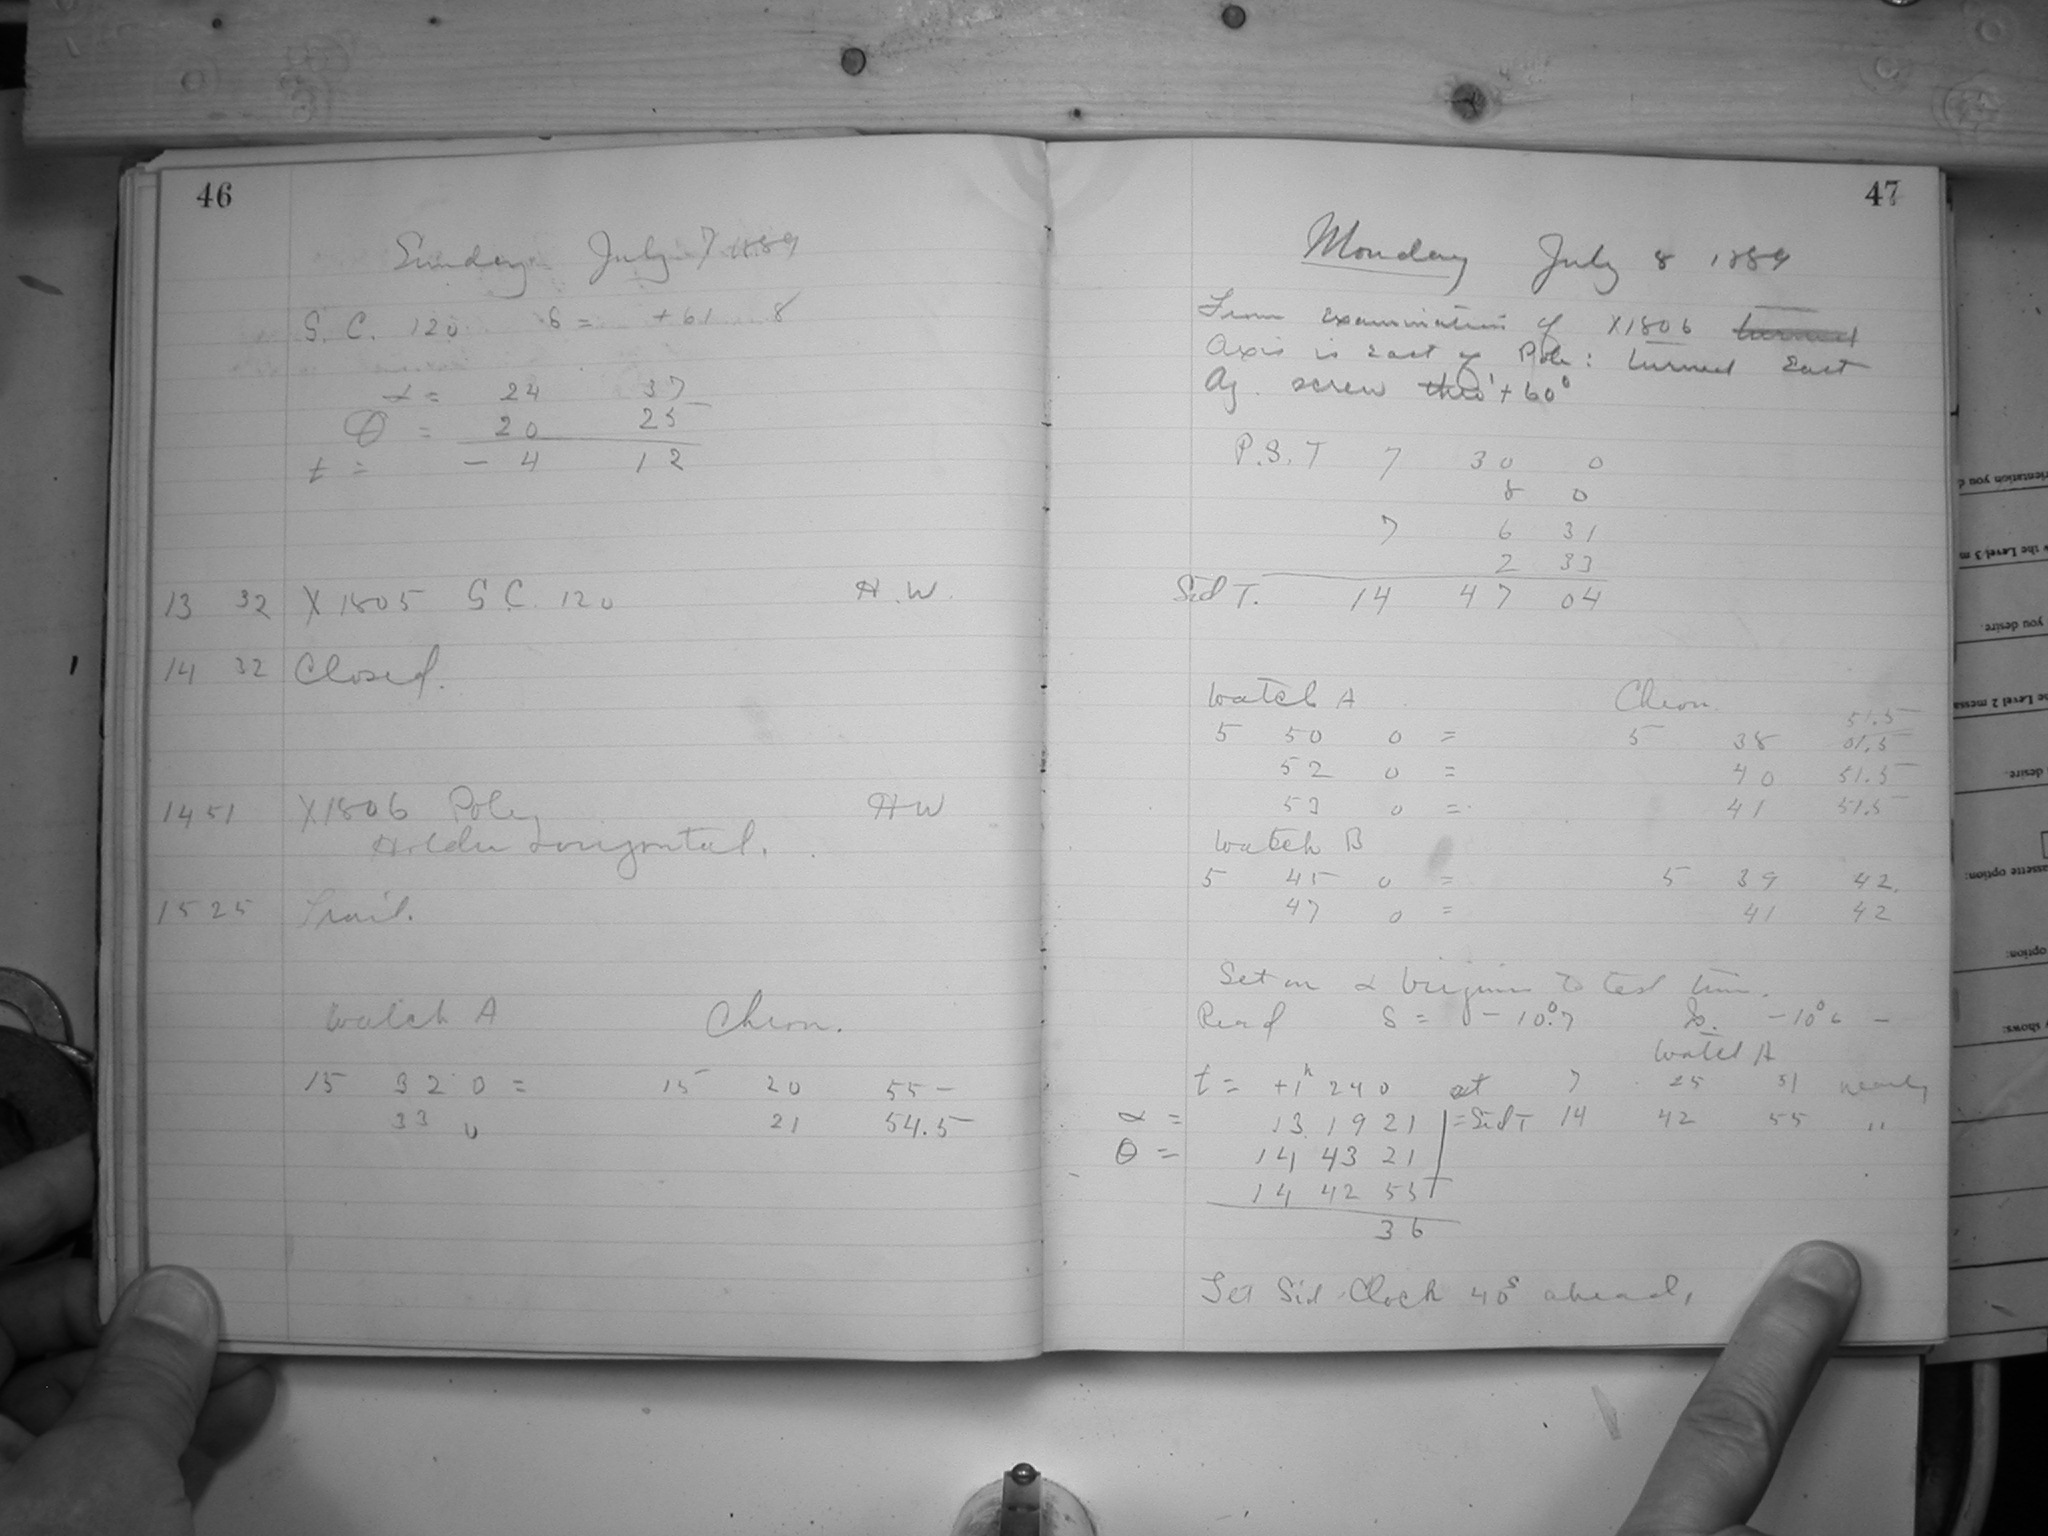 46
Sunday July 7 1889
S. C. 120 δ = +61 8
α = 24 37
θ = 20 25
t = - 4 12
13 32 X1805 S. C. 120 H. W.
14 32 Closed.
14 51 X1806 Pole, H W
Holder horizontal.
15 25 Trail.
Watch A Chron.
15 32 0 = 15 20 55 -
33 0 21 54.5
47
Monday July 8 1889
From examination of X1806 turned
Axis is East of Pole: turned East
Aj. screw thro' + 60°
P. S. T 7 30 0
8 0
7 6 31
2 33
Sid T. 14 47 04
Watch A Chron.
51.5
5 50 0 = 5 38 01.5
52 0 = 40 51.5
53 0 = 41 51.5
Watch B
5 45 0 = 5 39 42.
47 0 = 41 42
Set on α Virginis to test time.
Read δ = - 10°.7 - 10° 6 -
Watch A
t = +1h 24 0 at 7 25 51 nearly
α = 13 19 21 = Sid T 14 42 55 "
θ = 14 43 21
14 42 55
36
Set Sid Clock 40s ahead,